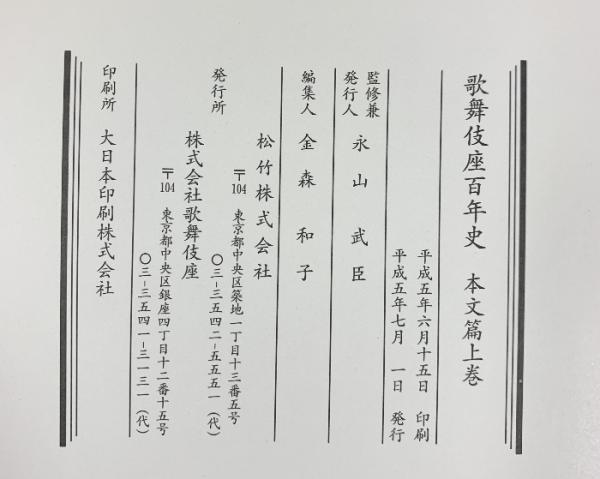 歌舞伎座百年史　本文篇上巻
平成五年六月十五日　印刷
平成五年七月　一日　発行
監修兼
発行人　永山武臣
編集人　金森和子
発行所　松竹株式会社
〒104　東京都中央区築地一丁目十三番五号
〇三-三五四二-五五五一（代）
株式会社歌舞伎座
〒104　東京都中央区銀座四丁目十二番十五号
〇三-三五四一-三一三一（代）
印刷所　大日本印刷株式会社